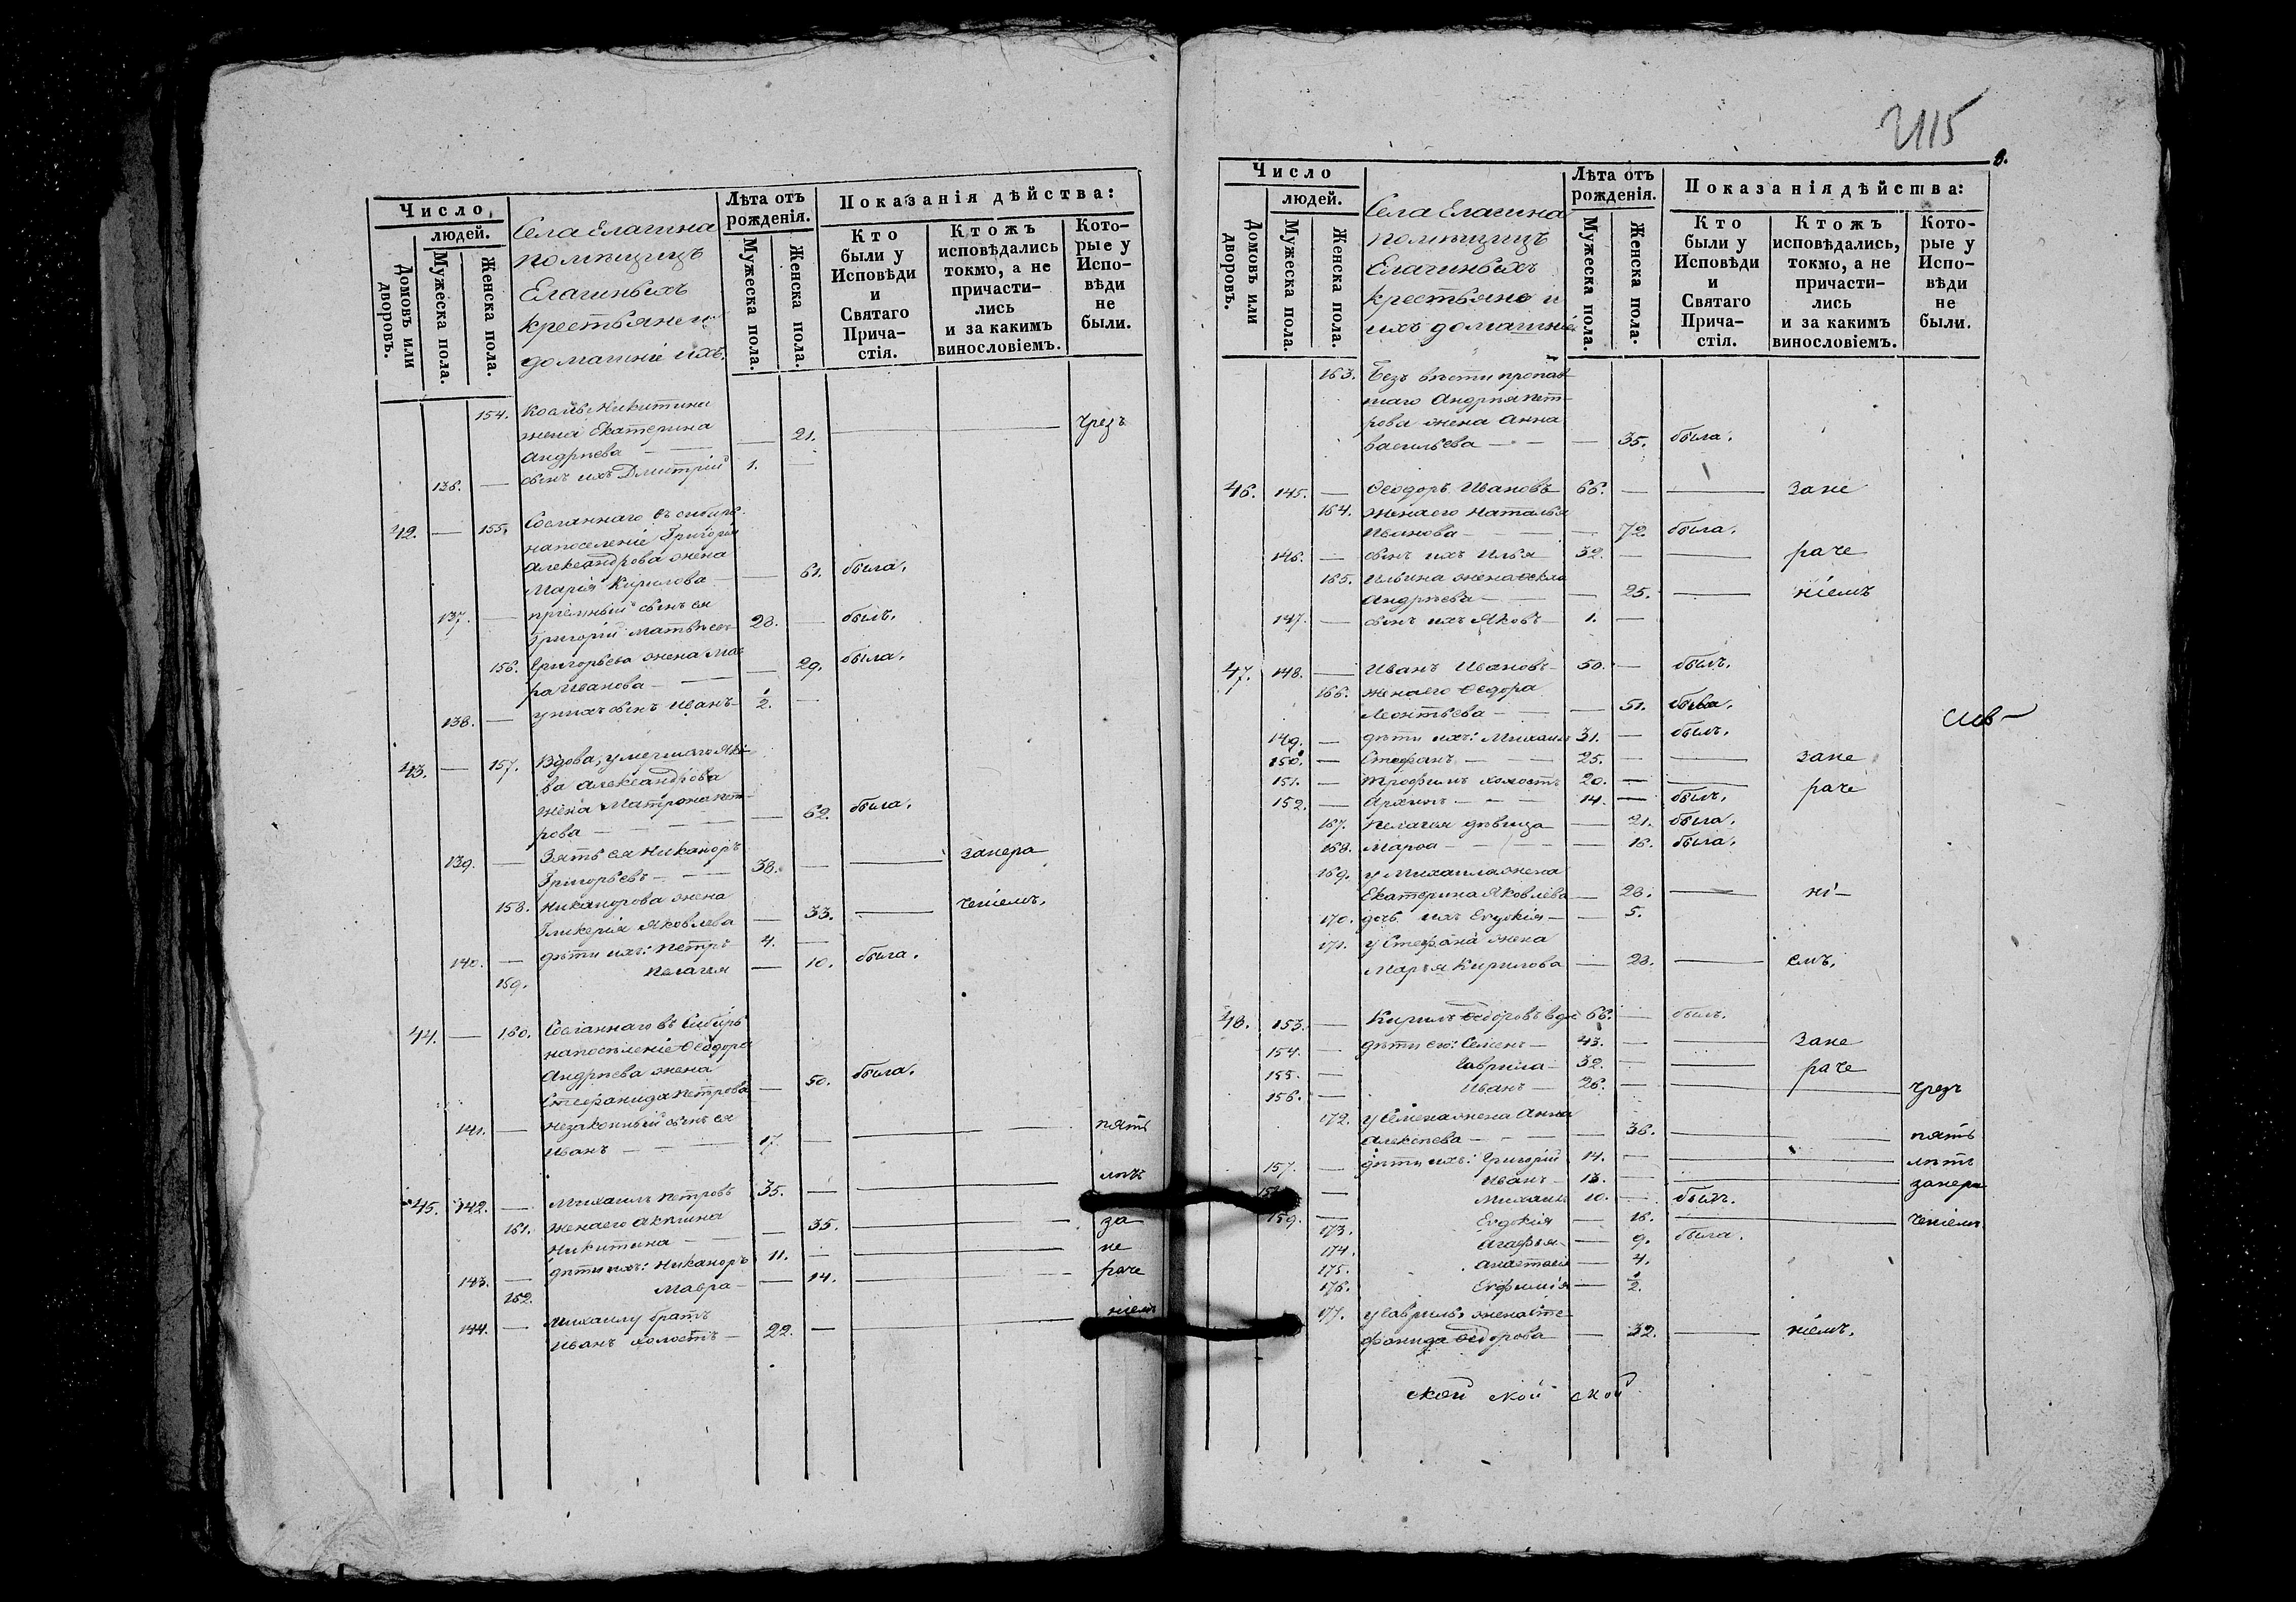 Число
людей.
Домовъ или
дворовъ.
Мужеска пола.
Женска пола.
Села Елагина
помѣщицъ
Елагиныхъ
крестьяне и
домашніе ихъ.
Лѣта отъ
рожденія.
Мужеска пола.
Женска пола.
Показанія дѣйства:
Кто
были у
Исповѣди
и
Святаго
Прича-
стія.
Ктожъ
исповѣдались
токмо, а не
причасти-
лись
и за какимъ
винословіемъ.
Кото-
рые у
Испо-
вѣди
не
были.
154. Козмы Никитина
жена Екатерина — 21. — чрезъ
Андрѣева —
136. — сынъ ихъ Дмитрій 1. —
42. — 155. Сосланнаго въ сибирь
на поселеніе Григорія
Александрова жена
Марія Кирилова — 61. была.
137. — пріемный сынъ ея
Григорій Матвѣевъ 28. — былъ.
156. Григорьева жена Мав
ра Иванова — — 29. была.
138. — у нихъ сынъ Иванъ — 1/2. —
43. — 157. Вдова, умершаго Яко-
ва Александрова
жена Матрона пет-
рова — — 62. была.
139. — Зять ея Никаноръ
Григорьевъ — 38. — — занера
158. Никанорова жена
Гликерія Яковлева — 33. — ченіемъ.
140. — дѣти ихъ: Петръ 4. —
159. Пелагея — 10. была.
44. — 160. Сосланнаго въ Сибирь
на поселеніе Ѳеодора
Андрѣева жена
Стефанида петрова — 50. была.
141. — незаконный сынъ ея
Иванъ — 17. — — пять
45. 142. — Михаилъ Петровъ 35. — — лѣтъ
161. жена его Акилина
Никитина — — 35. — за
143. — дѣти ихъ: Никаноръ 11. — — не
162. Мавра — — 14. — раче
144. — Михаилу братъ
Иванъ холостъ — 22. — — ніемъ
2115
8.
Число
людей.
Домовъ или
дворовъ.
Мужеска пола.
Женска пола.
Села Елагина
помѣщицъ
Елагиныхъ
крестьяне и
ихъ домашніе
Лѣта отъ
рожденія.
Мужеска пола.
Женска пола.
Показанія дѣйства:
Кто
были у
Исповѣди
и
Святаго
Прича-
стія.
Ктожъ
исповѣдались,
токмо, а не
причасти-
лись
и за какимъ
винословіемъ.
Кото-
рые у
Испо-
вѣди
не
были.
163. Безъ вѣсти пропав
шаго Андрѣя пет-
рова жена Анна
васильева — — 35. была.
46. 145. — Ѳеодоръ Ивановъ 66. — — Зане
164. жена его Наталья
Иванова — — 72. была.
146. — сынъ ихъ Илья 32. — — раче
165. Ильина жена Ѳекла
Андрѣева — — 25. — ніемъ
147. — сынъ ихъ Яковъ 1. —
47. 148. — Иванъ Ивановъ — 50. — былъ.
166. жена его Ѳедора
Леонтьева — — 51. была.
149. — дѣти ихъ: Михаилъ 31. — былъ.
150. — Стефанъ — 25. — — зане
151. — Трофимъ холостъ 20. — — раче
152. — Архипъ — 14. — былъ.
167. Пелагея дѣвица — 21. была.
168. Марѳа — — 16. была.
169. у Михаила жена
Екатерина Яковлева — 28. — ні—
170. дочь ихъ Евдокія — — 5.
171. у Стефана жена
Марья Кирилова — 28. — емъ.
48. 153. — Кирилъ Ѳедоровъ вдо 66. — былъ.
154. — дѣти его: Семенъ — 43. — — Зане
155. — Гаврила — 32. — — раче
156. — Иванъ — 26. — — чрезъ
172. у Семена жена Анна
Алексѣева — — 36. — пять
157. — дѣти ихъ: Григорій 14. — — лѣтъ
— Иванъ — 13. — — занера
159. — Михаилъ 10. — былъ.
173. Евдокія — 16. — ченіемъ
174. Агафья — — 9. была.
175. Анастасія — 4.
176. Евфимія — 1/2.
177. у Гаврилы жена Сте
фанида Ѳедорова — 32. — ніемъ.
ской ской ской